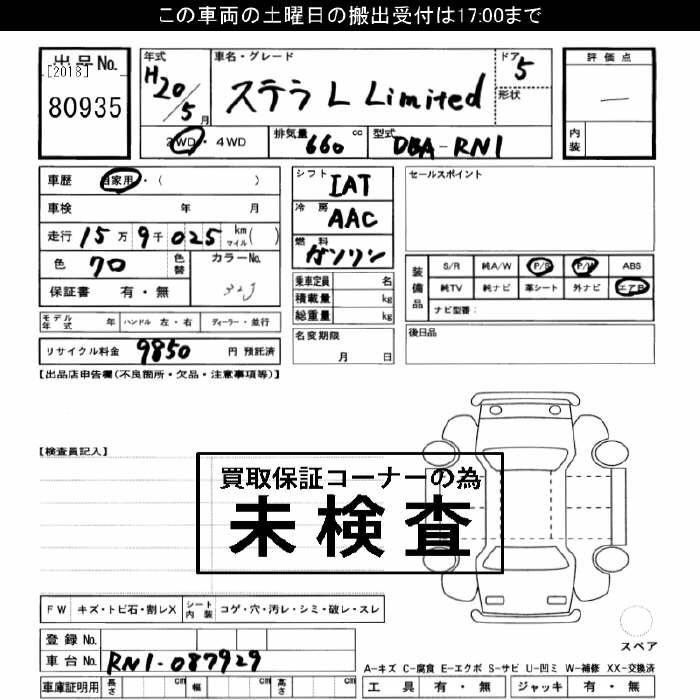 この車両の土曜日の搬出受付は17:00まで
出品No. [2018] 80935
年式 H20/5月
車名・グレード ステラ L Limited
ドア 5
形状
評価点 —
内装
2WD・4WD
排気量 660 cc
型式 DBA-RN1
車歴 自家用・( )
車検 年 月
走行 15万9千025 km マイル( )
色 クロ 色替 カラーNo. 32J
保証書 有・無
シフト IAT
冷房 AAC
燃料 ガソリン
乗車定員 名
積載量 kg
総重量 kg
セールスポイント
装備品 S/R 純A/W P/S P/W ABS
純TV 純ナビ 革シート 外ナビ エアB
ナビ型番:
モデル年式 年 ハンドル 左・右 ディーラー・並行
リサイクル料金 9850 円 預託済
名変期限 月 日
後日品
【出品店申告欄(不良箇所・欠品・注意事項等)】
【検査員記入】
買取保証コーナーの為
未検査
FW キズ・トビ石・割レX シート内装 コゲ・穴・汚レ・シミ・破レ・スレ
登録No.
車台No. RN1-087929
スペア
A-キズ C-腐食 E-エクボ S-サビ U-凹ミ W-補修 XX-交換済
車庫証明用 長さ cm 幅 cm 高さ cm
工具 有・無 ジャッキ 有・無